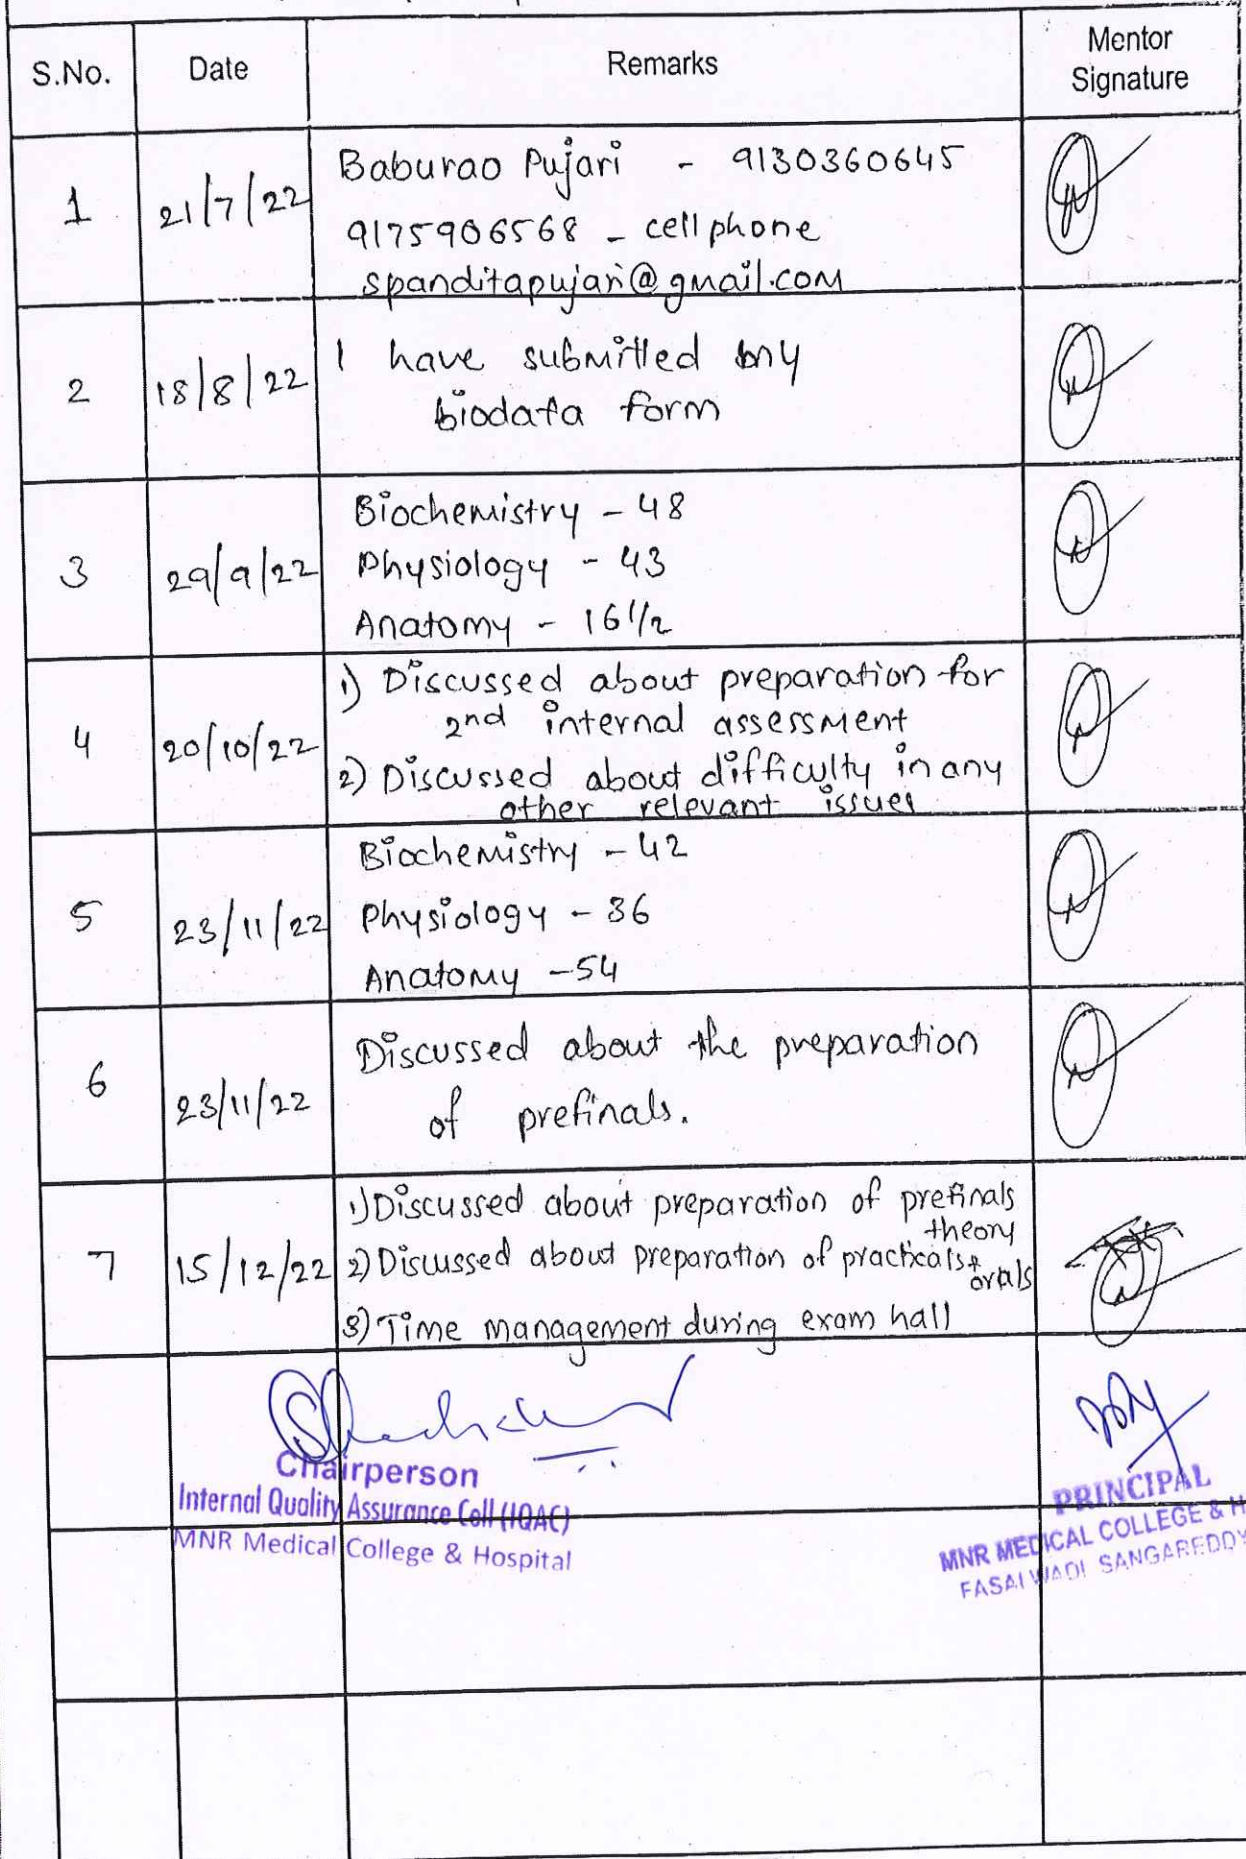 S.No. Date Remarks Mentor Signature
1 21/7/22 Baburao Pujari - 9130360645
9175906568 - cell phone
spanditapujari@gmail.com
2 18/8/22 I have submitted my
biodata form
3 29/9/22 Biochemistry - 48
Physiology - 43
Anatomy - 16 1/2
4 20/10/22 1) Discussed about preparation for
2nd internal assessment
2) Discussed about difficulty in any
other relevant issues
5 23/11/22 Biochemistry - 42
Physiology - 36
Anatomy - 54
6 23/11/22 Discussed about the preparation
of prefinals.
7 15/12/22 1) Discussed about preparation of prefinals
theory
2) Discussed about preparation of practicals+
orals
3) Time management during exam hall
Chairperson
Internal Quality Assurance Cell (IQAC)
MNR Medical College & Hospital
PRINCIPAL
MNR MEDICAL COLLEGE & H
FASALWADI SANGAREDDY